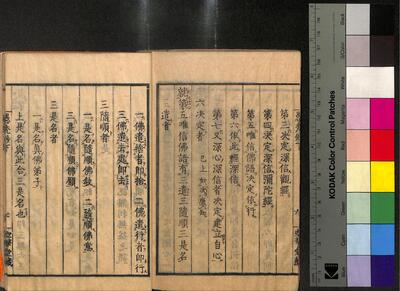 第三決定深信觀經
第四決定深信彌陀經
第五唯信佛語決定依行
第六依此經深信
第七又深心深信者決定建立自心
六決定者 已上如
就第五唯信佛語有三遣三隨順三是名
三遣者
一佛遣捨者即捨 二佛遣行者即行
三佛遣去處即去
三隨順者
一是名隨順佛教 二隨順佛意
三是名隨順佛願
三是名者
一是名真佛弟子
上是名與此合三是名也
KODAK Color Control Patches
Blue
Cyan
Green
Yellow
Red
Magenta
White
3/Color
Black